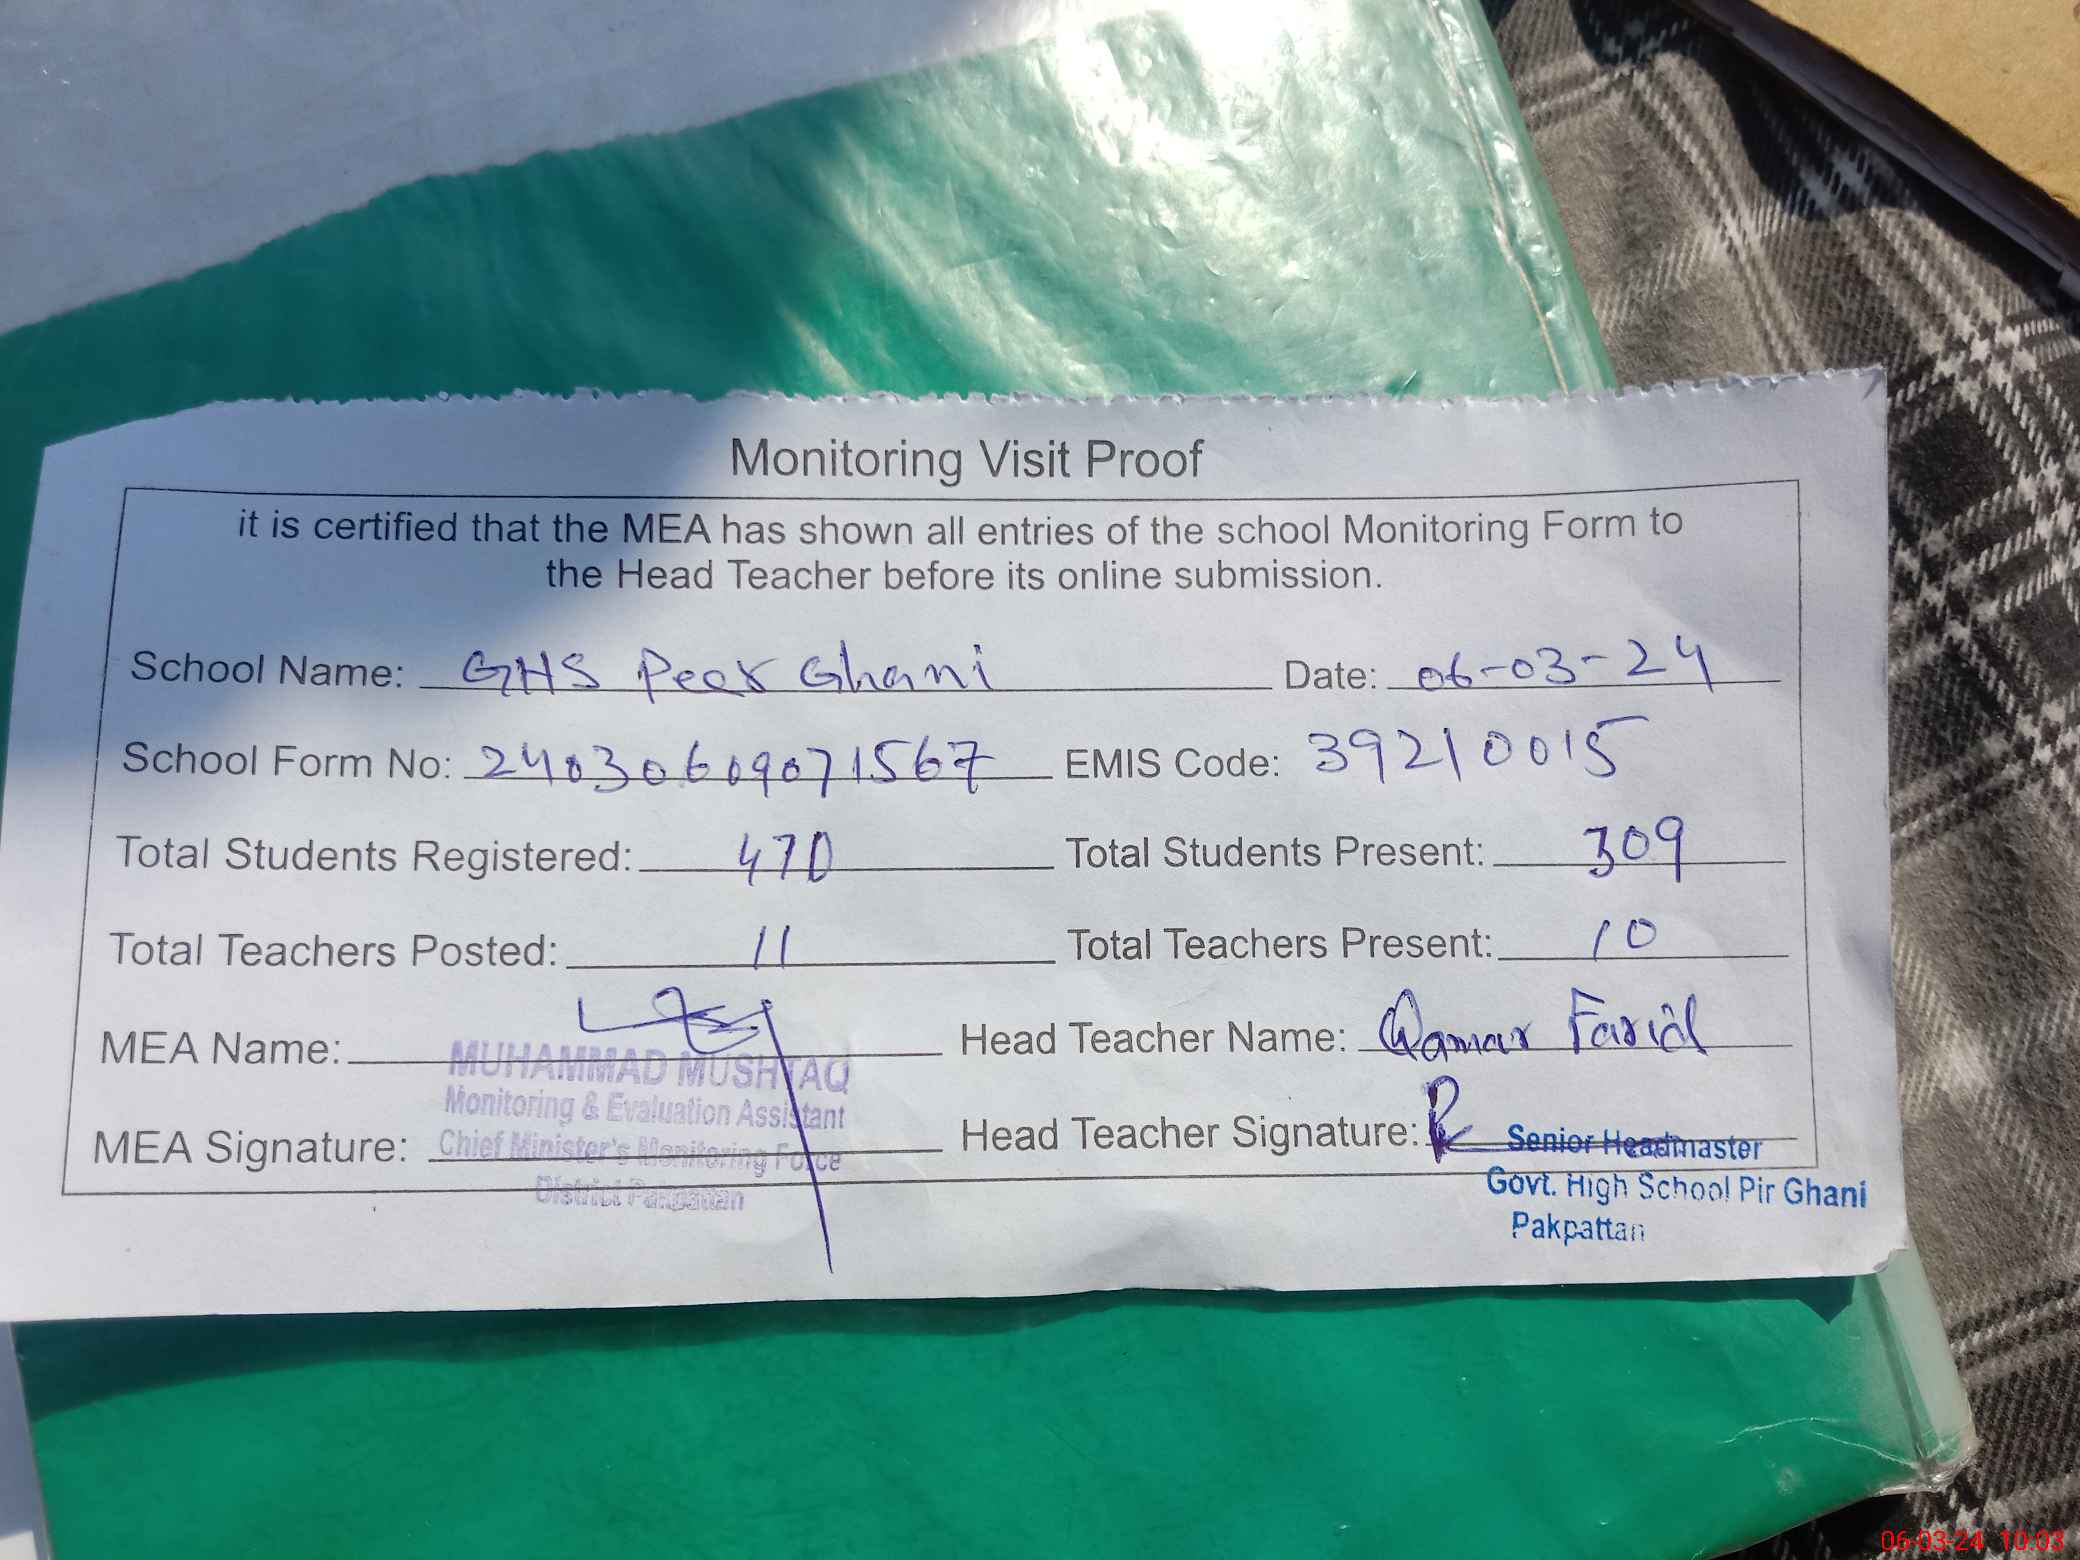 Monitoring Visit Proof
it is certified that the MEA has shown all entries of the school Monitoring Form to
the Head Teacher before its online submission.
School Name: GHS Peer Ghani Date: 06-03-24
School Form No: 24030609071567 EMIS Code: 39210015
Total Students Registered: 470 Total Students Present: 309
Total Teachers Posted: 11 Total Teachers Present: 10
MEA Name: Head Teacher Name: Qamar Farid
MUHAMMAD MUSHTAQ
Monitoring & Evaluation Assistant
MEA Signature: Chief Minister's Monitoring Force Head Teacher Signature: Senior Headmaster
District Pakpattan Govt. High School Pir Ghani
Pakpattan
06-03-24 10:03